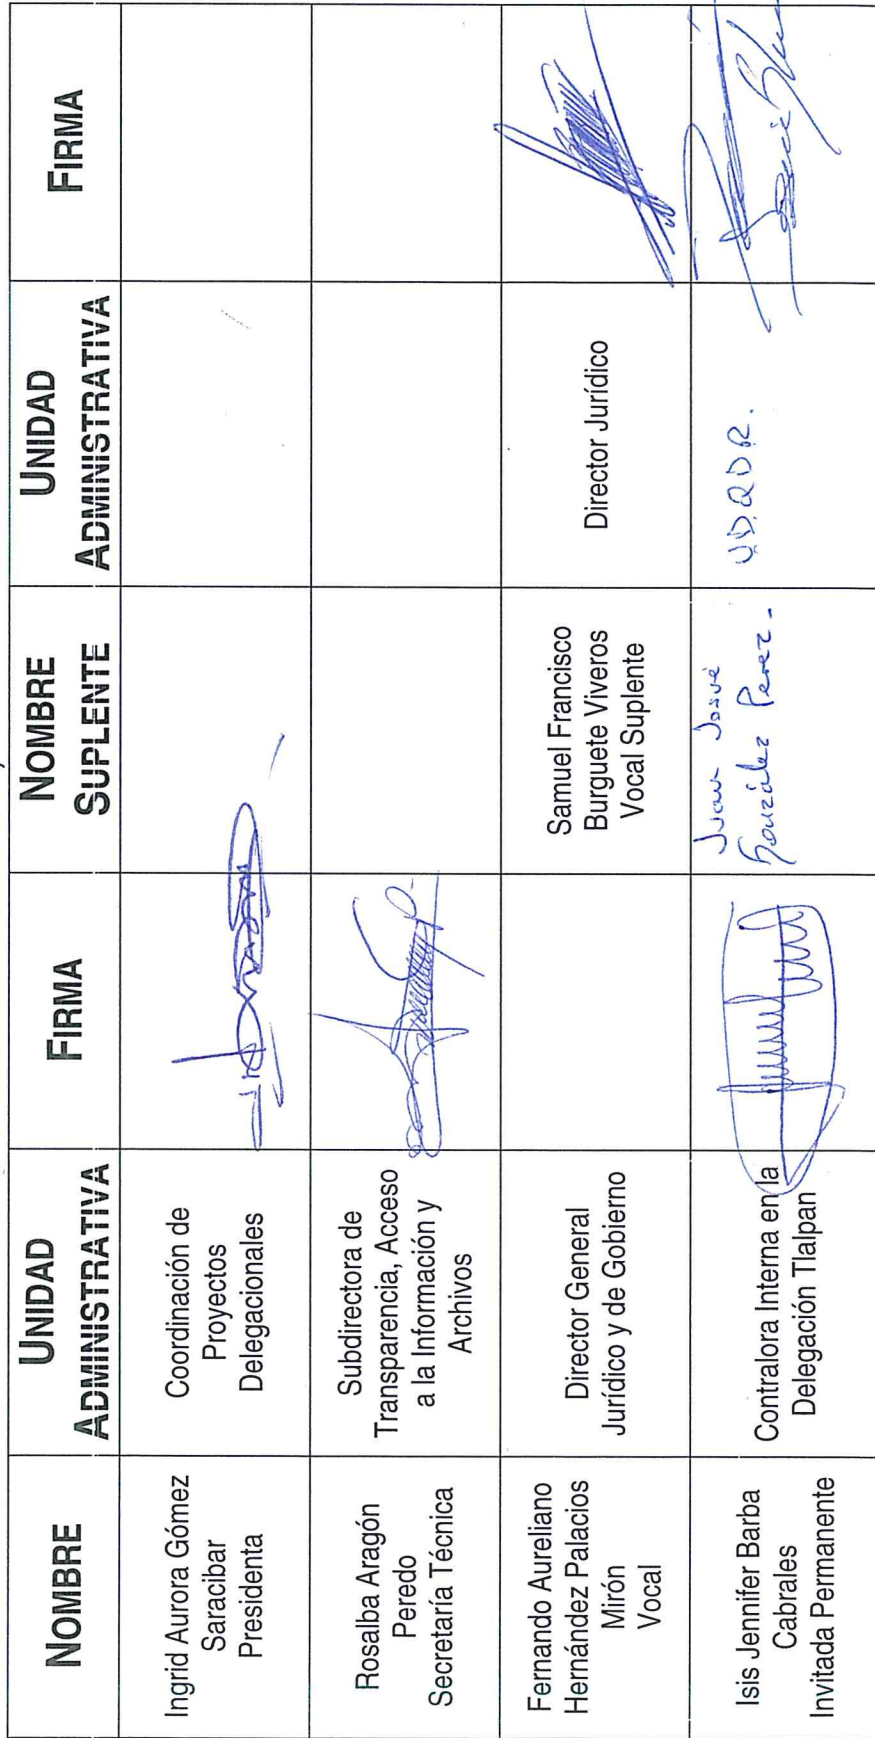 NOMBRE
UNIDAD
ADMINISTRATIVA
FIRMA
NOMBRE
SUPLENTE
UNIDAD
ADMINISTRATIVA
FIRMA
Ingrid Aurora Gómez
Saracibar
Presidenta
Coordinación de
Proyectos
Delegacionales
Rosalba Aragón
Peredo
Secretaría Técnica
Subdirectora de
Transparencia, Acceso
a la Información y
Archivos
Fernando Aureliano
Hernández Palacios
Mirón
Vocal
Director General
Jurídico y de Gobierno
Samuel Francisco
Burguete Viveros
Vocal Suplente
Director Jurídico
Isis Jennifer Barba
Cabrales
Invitada Permanente
Contralora Interna en la
Delegación Tlalpan
Juan Josué
González Perez.